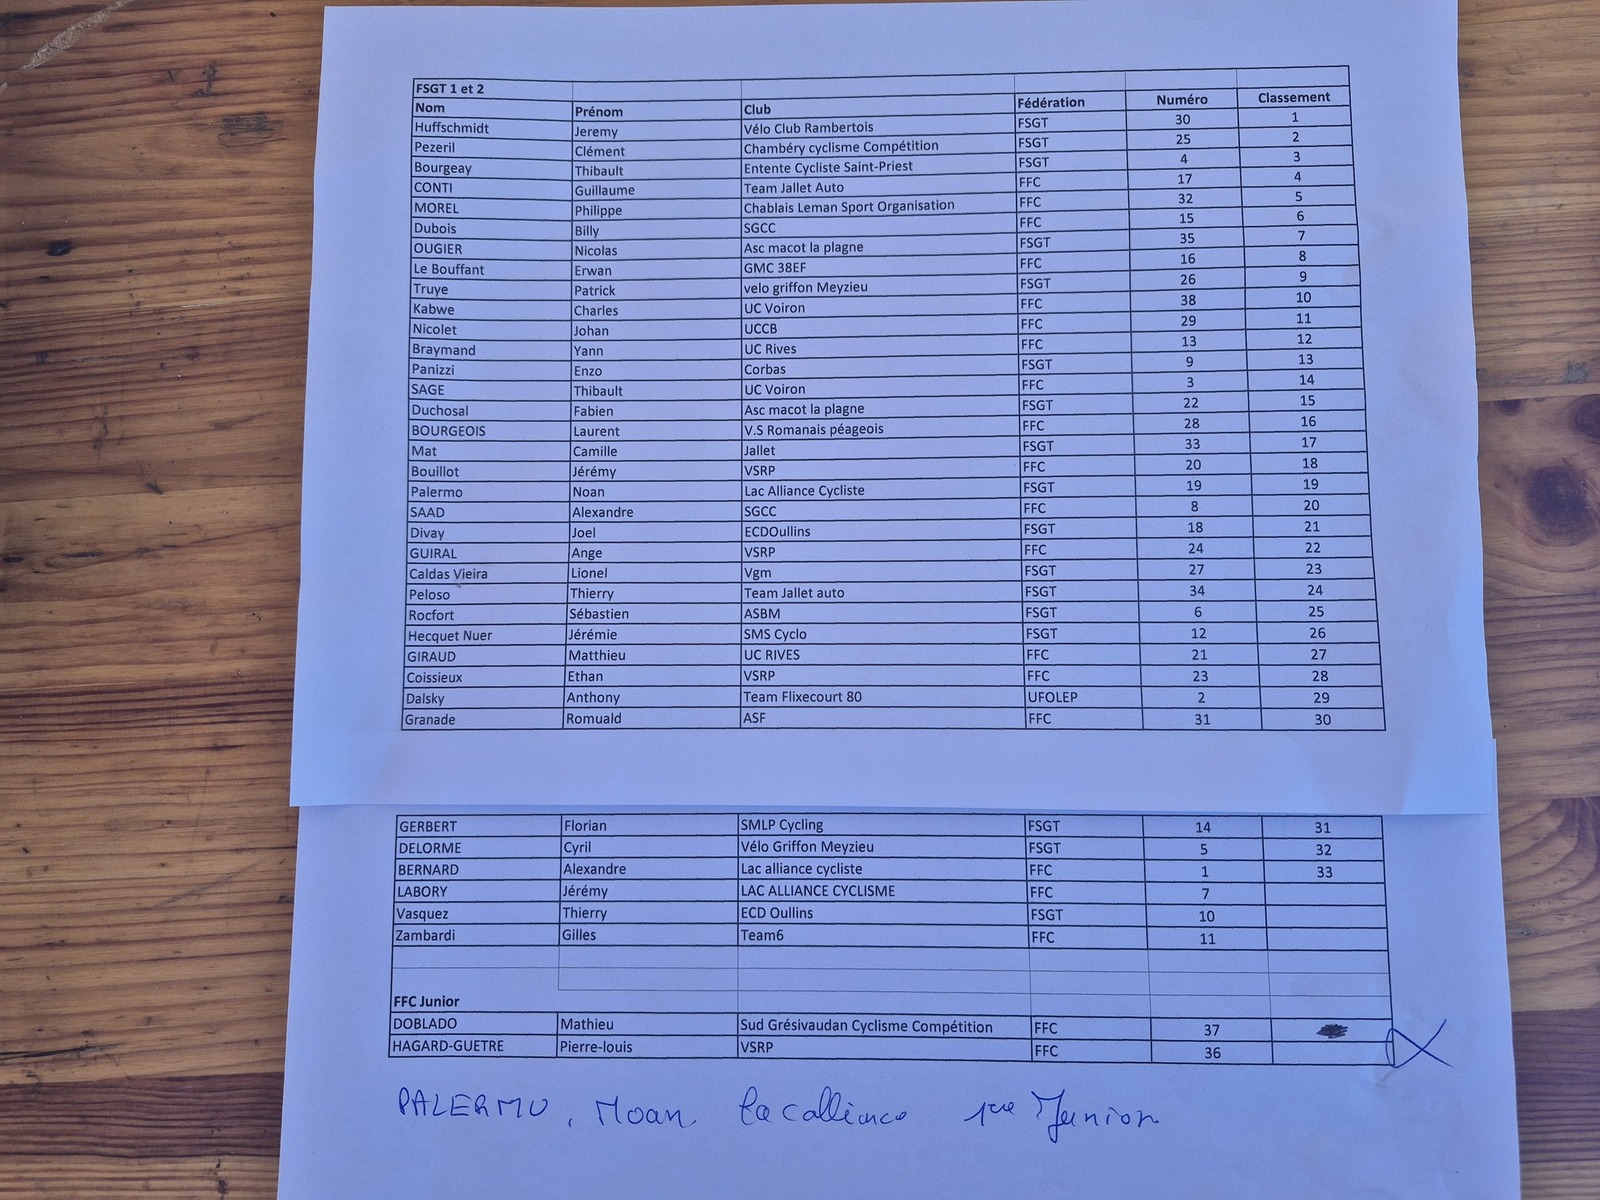 FSGT 1 et 2
Nom Prénom Club Fédération Numéro Classement
Huffschmidt Jeremy Vélo Club Rambertois FSGT 30 1
Pezeril Clément Chambéry cyclisme Compétition FSGT 25 2
Bourgeay Thibault Entente Cycliste Saint-Priest FSGT 4 3
CONTI Guillaume Team Jallet Auto FFC 17 4
MOREL Philippe Chablais Leman Sport Organisation FFC 32 5
Dubois Billy SGCC FFC 15 6
OUGIER Nicolas Asc macot la plagne FSGT 35 7
Le Bouffant Erwan GMC 38EF FFC 16 8
Truye Patrick velo griffon Meyzieu FSGT 26 9
Kabwe Charles UC Voiron FFC 38 10
Nicolet Johan UCCB FFC 29 11
Braymand Yann UC Rives FFC 13 12
Panizzi Enzo Corbas FSGT 9 13
SAGE Thibault UC Voiron FFC 3 14
Duchosal Fabien Asc macot la plagne FSGT 22 15
BOURGEOIS Laurent V.S Romanais péageois FFC 28 16
Mat Camille Jallet FSGT 33 17
Bouillot Jérémy VSRP FFC 20 18
Palermo Noan Lac Alliance Cycliste FSGT 19 19
SAAD Alexandre SGCC FFC 8 20
Divay Joel ECDOullins FSGT 18 21
GUIRAL Ange VSRP FFC 24 22
Caldas Vieira Lionel Vgm FSGT 27 23
Peloso Thierry Team Jallet auto FSGT 34 24
Rocfort Sébastien ASBM FSGT 6 25
Hecquet Nuer Jérémie SMS Cyclo FSGT 12 26
GIRAUD Matthieu UC RIVES FFC 21 27
Coissieux Ethan VSRP FFC 23 28
Dalsky Anthony Team Flixecourt 80 UFOLEP 2 29
Granade Romuald ASF FFC 31 30
GERBERT Florian SMLP Cycling FSGT 14 31
DELORME Cyril Vélo Griffon Meyzieu FSGT 5 32
BERNARD Alexandre Lac alliance cycliste FFC 1 33
LABORY Jérémy LAC ALLIANCE CYCLISME FFC 7
Vasquez Thierry ECD Oullins FSGT 10
Zambardi Gilles Team6 FFC 11
FFC Junior
DOBLADO Mathieu Sud Grésivaudan Cyclisme Compétition FFC 37
HAGARD-GUETRE Pierre-louis VSRP FFC 36
PALERMO, Noan Junior